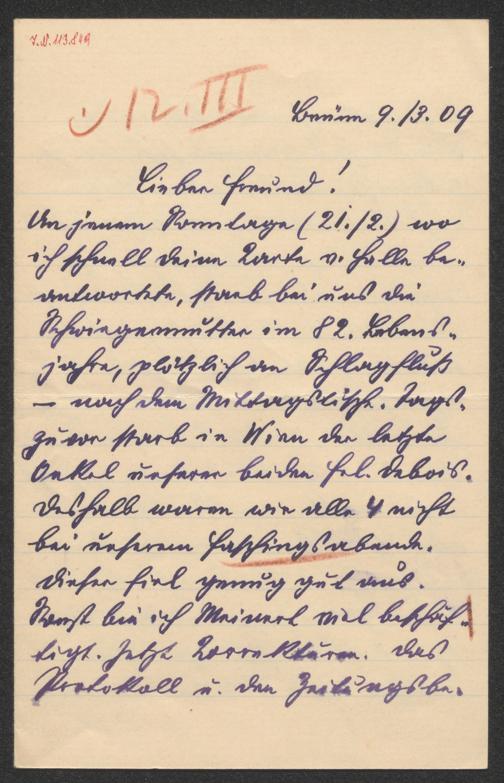 I.N. 113.849
12. III
Brünn 9./3. 09
Lieber Freund!
An jenem Sonntage (21./2.) wo
ich schnell deine Karte v. Halle be-
antwortete, starb bei uns die
Schwiegermutter im 82. Lebens-
jahre, plötzlich an Schlagfluß
— nach dem Mittagstische. Tags-
zuvor starb in Wien der letzte
Onkel unserer beiden Frl. Debois.
Deshalb waren wir alle 4 nicht
bei unserem Faschingsabende.
Dieser fiel genug gut aus.
Sonst bin ich Meinert viel beschäf-
tigt. Jetzt Korrekturen. Das
Protokoll u. den Zeitungsbe-